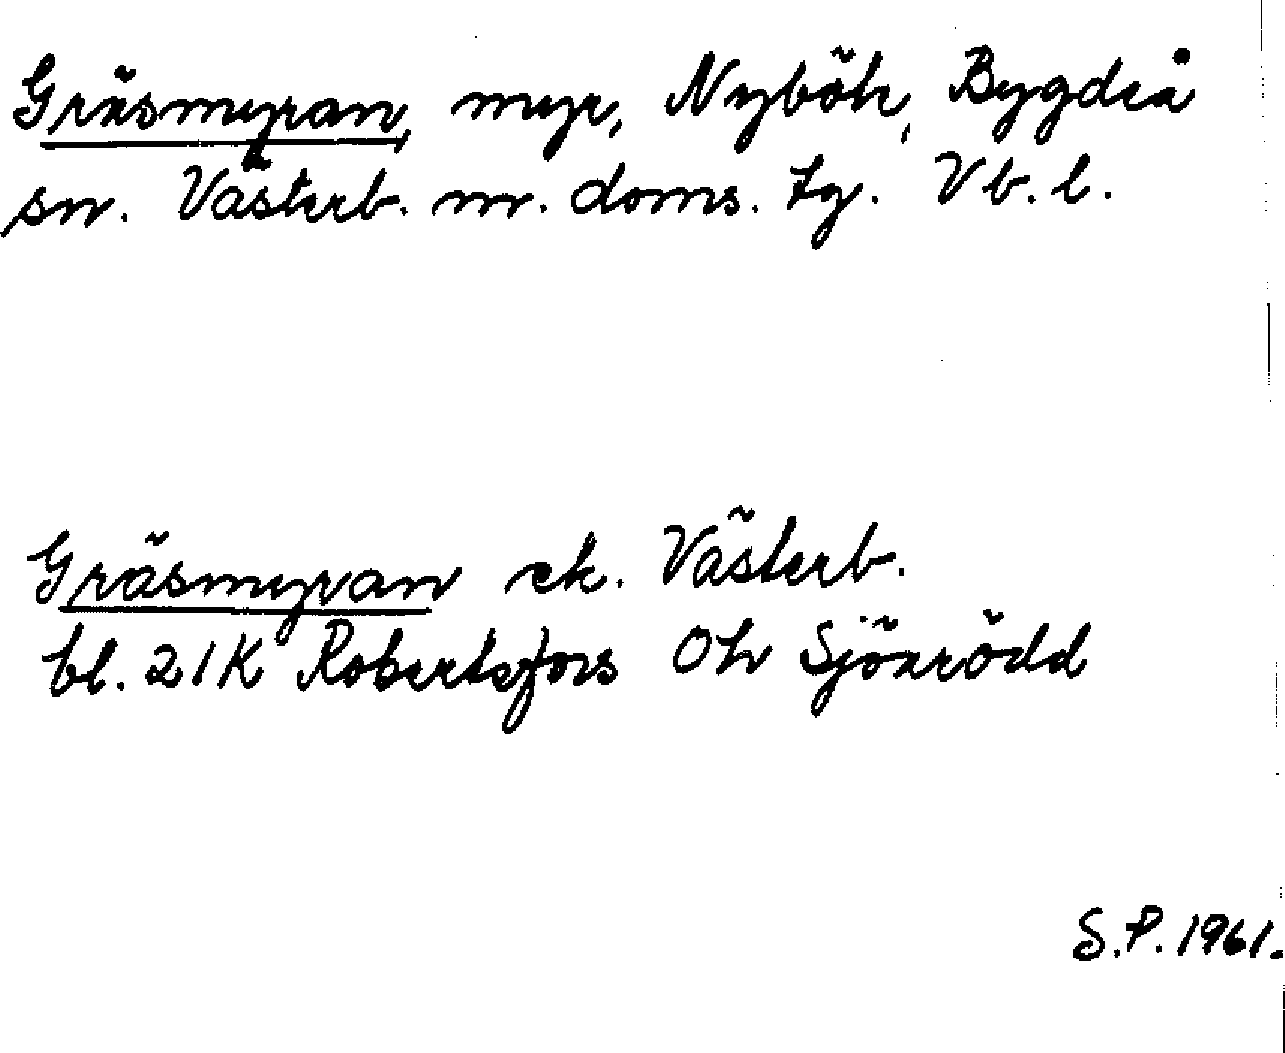 Gräsmyran, myr, Nyböle, Bygdeå
sn. Västerb. nr. doms. tg. Vb. l.
Gräsmyran ek. Västerb.
bl. 21K Robertsfors
S.P. 1961.